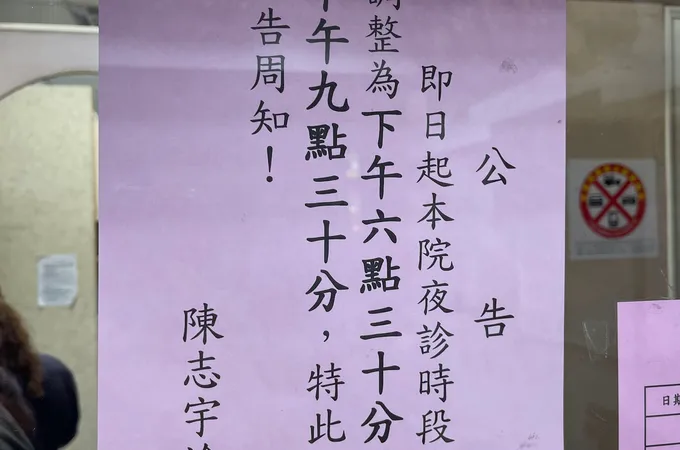 公告
即日起本院夜診時段
調整為下午六點三十分
午九點三十分，特此
告周知！
陳志宇
日期